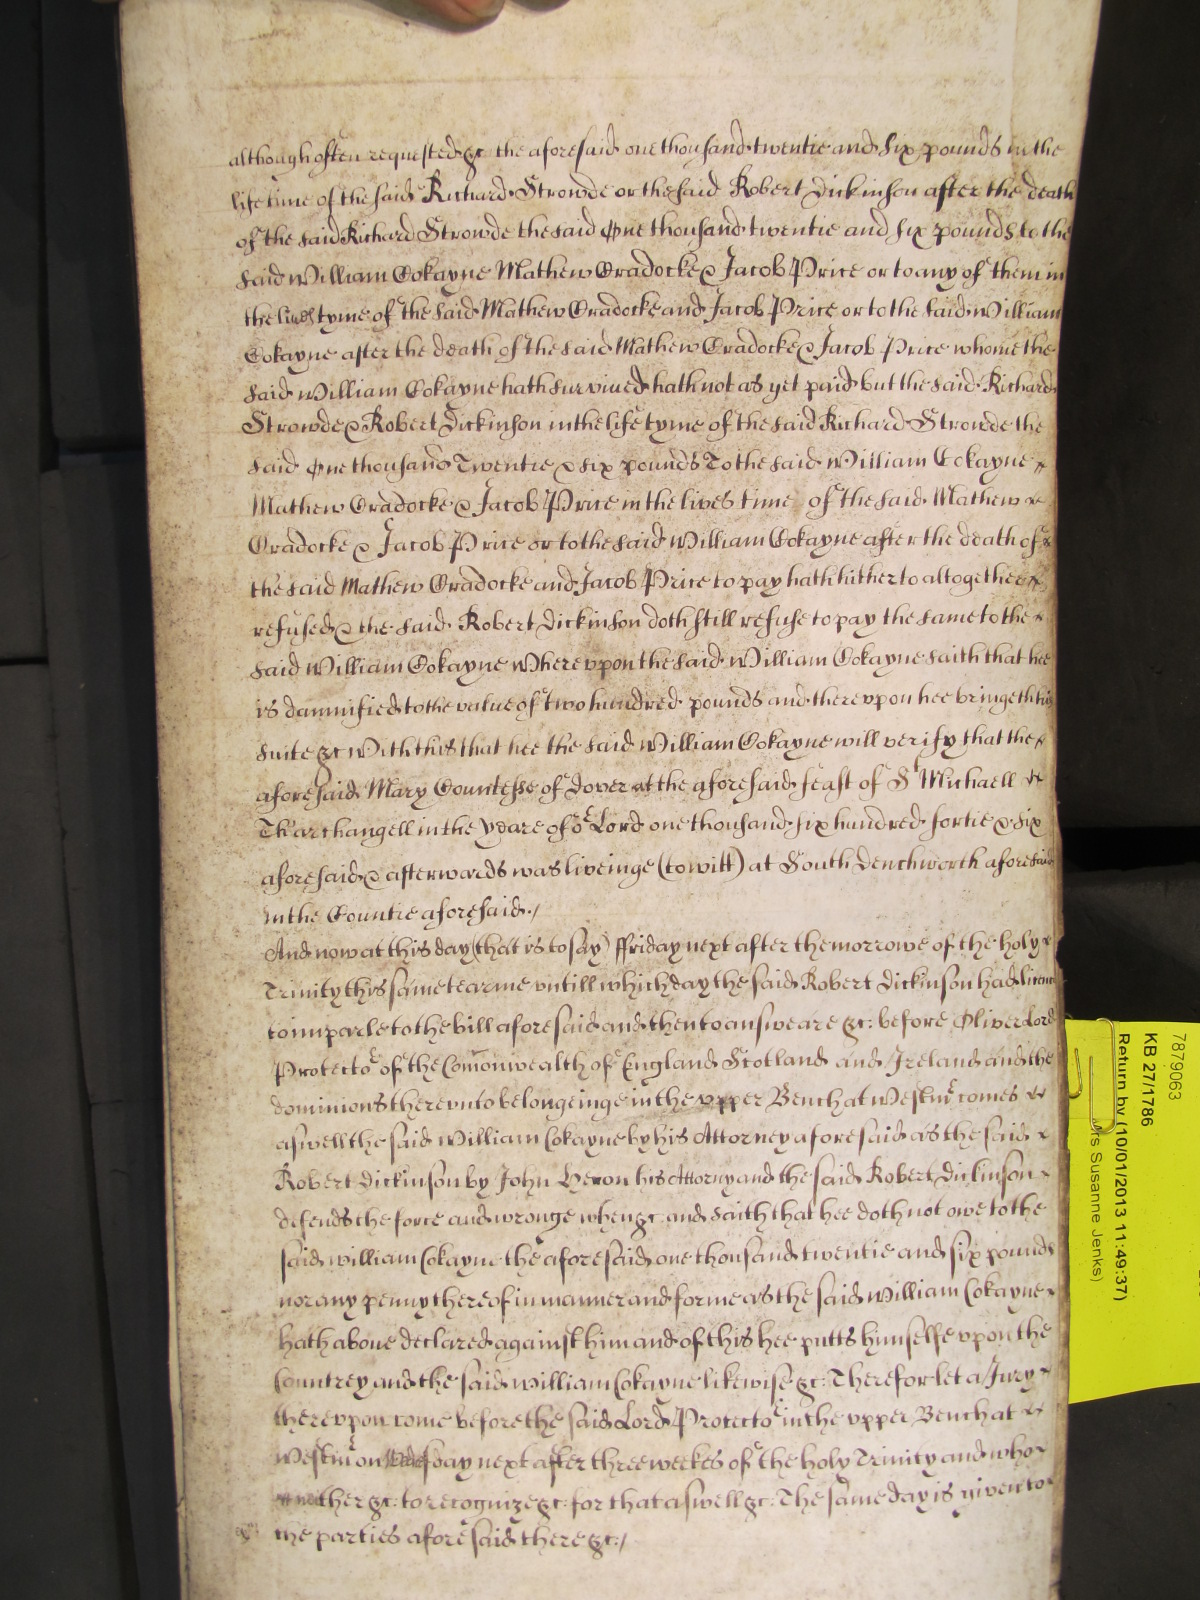 although often requested &c the aforesaid one thousand twentie and six pounds in the
life time of the said Richard Strowde or the said Robert Dickinson after the death
of the said Richard Strowde the said One thousand twentie and six pounds to the
said William Cokayne Mathew Cradocke & Jacob Price or to any of them in
the lives tyme of the said Mathew Cradocke and Jacob Price or to the said William
Cokayne after the death of the said Mathew Cradocke & Jacob Price whome the
said William Cokayne hath survived hath not as yet paid but the said Richard
Strowde & Robert Dickinson in the life tyme of the said Richard Strowde the
said One thousand Twentie & six pounds To the said William Cokayne
Mathew Cradocke & Jacob Price in the lives time of the said Mathew
Cradocke & Jacob Price or to the said William Cokayne after the death of
the said Mathew Cradocke and Jacob Price to pay hath hither to altogether
refused & the said Robert Dickinson doth still refuse to pay the same to the
said William Cokayne Wherevpon the said William Cokayne saith that hee
is damnified to the value of two hundred pounds and therevpon hee bringeth his
suite &c With this that hee the said William Cokayne will verify that the
aforesaid Mary Countesse of Dover at the aforesaid feast of St Michaell
Th'archangell in the yeare of or Lord one thousand six hundred fortie & six
aforesaid & afterwards was liveinge (to witt) at South Denchworth aforesaid
in the Countie aforesaid./
And now at this day (that is to say) ffriday next after the morrowe of the holy
Trinity this same tearme vntill which day the said Robert Dickinson had licence
to imparle to the bill aforesaid and then to answeare &c: before Oliver Lord
Protector of the Comonwealth of England Scotland and Ireland and the
dominions therevnto belongeinge in the vpper Bench at Westmr comes
aswell the said William Cokayne by his Attorney aforesaid as the said
Robert Dickinson by John Heron his Attorny and the said Robert Dickinson
defends the force and wronge when &c and saith that hee doth not owe to the
said William Cokayne the aforesaid one thousand twentie and six pounds
nor any penny thereof in manner and forme as the said William Cokayne
hath above declared against him and of this hee putts himselfe vpon the
Countrey and the said William Cokayne likewise &c: Therefor let a Jury
therevpon come before the said Lord Protector in the vpper Bench at
Westmr on day next after three weekes of the holy Trinity and who
neither &c: to recognize &c: for that aswell &c: The same day is given to
the parties aforesaid there &c:/
7879063
KB 27/1786
Return by (10/01/2013 11:49:37)
Susanne Jenks)